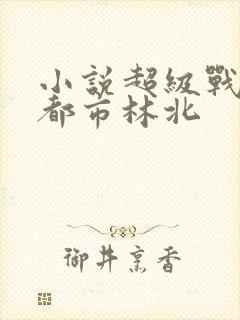 小説超級戰
都市林北
御井烹香